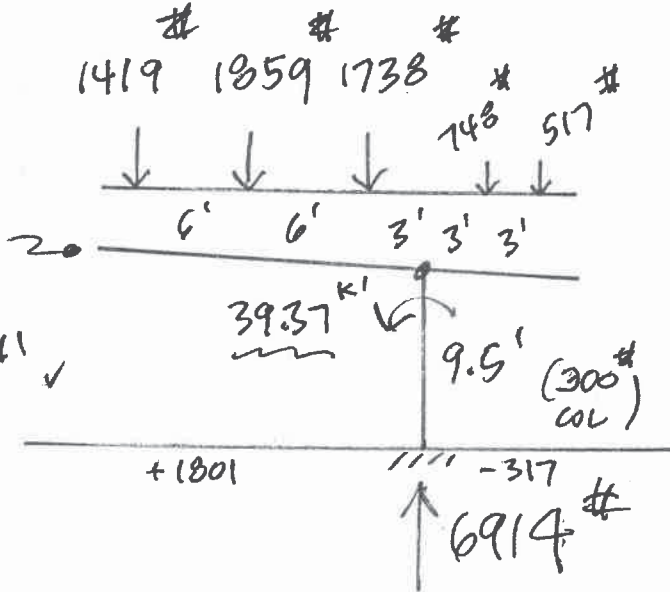 1419# 1859# 1738# 748# 517#
6' 6' 3' 3' 3'
39.37 K'
9.5' (300# COL)
+1801 -317
6914#